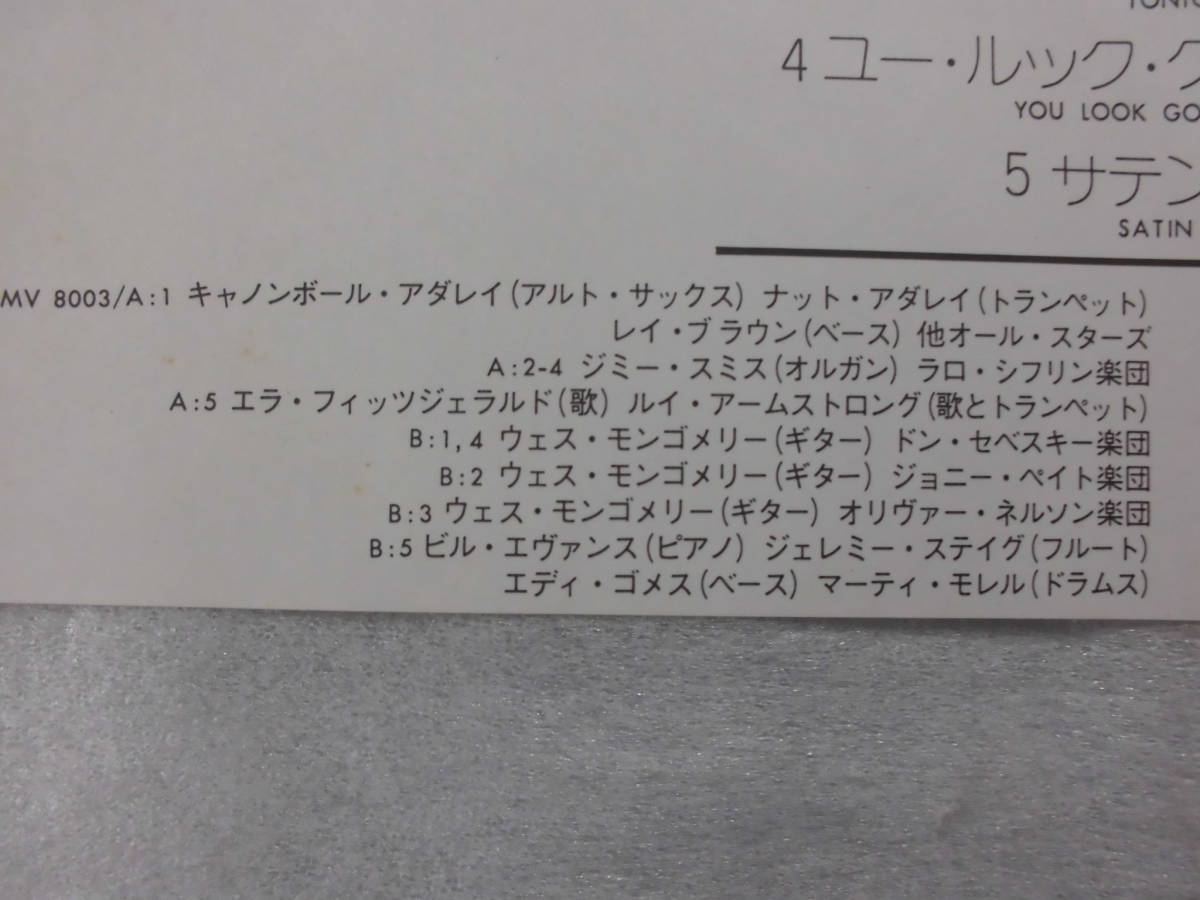 4 ユー・ルック・
YOU LOOK
5 サテン
SATIN
MV 8003/A:1 キャノンボール・アダレイ(アルト・サックス) ナット・アダレイ(トランペット)
レイ・ブラウン(ベース) 他オール・スターズ
A:2-4 ジミー・スミス(オルガン) ラロ・シフリン楽団
A:5 エラ・フィッツジェラルド(歌) ルイ・アームストロング(歌とトランペット)
B:1,4 ウェス・モンゴメリー(ギター) ドン・セベスキー楽団
B:2 ウェス・モンゴメリー(ギター) ジョニー・ペイト楽団
B:3 ウェス・モンゴメリー(ギター) オリヴァー・ネルソン楽団
B:5 ビル・エヴァンス(ピアノ) ジェレミー・ステイグ(フルート)
エディ・ゴメス(ベース) マーティ・モレル(ドラムス)